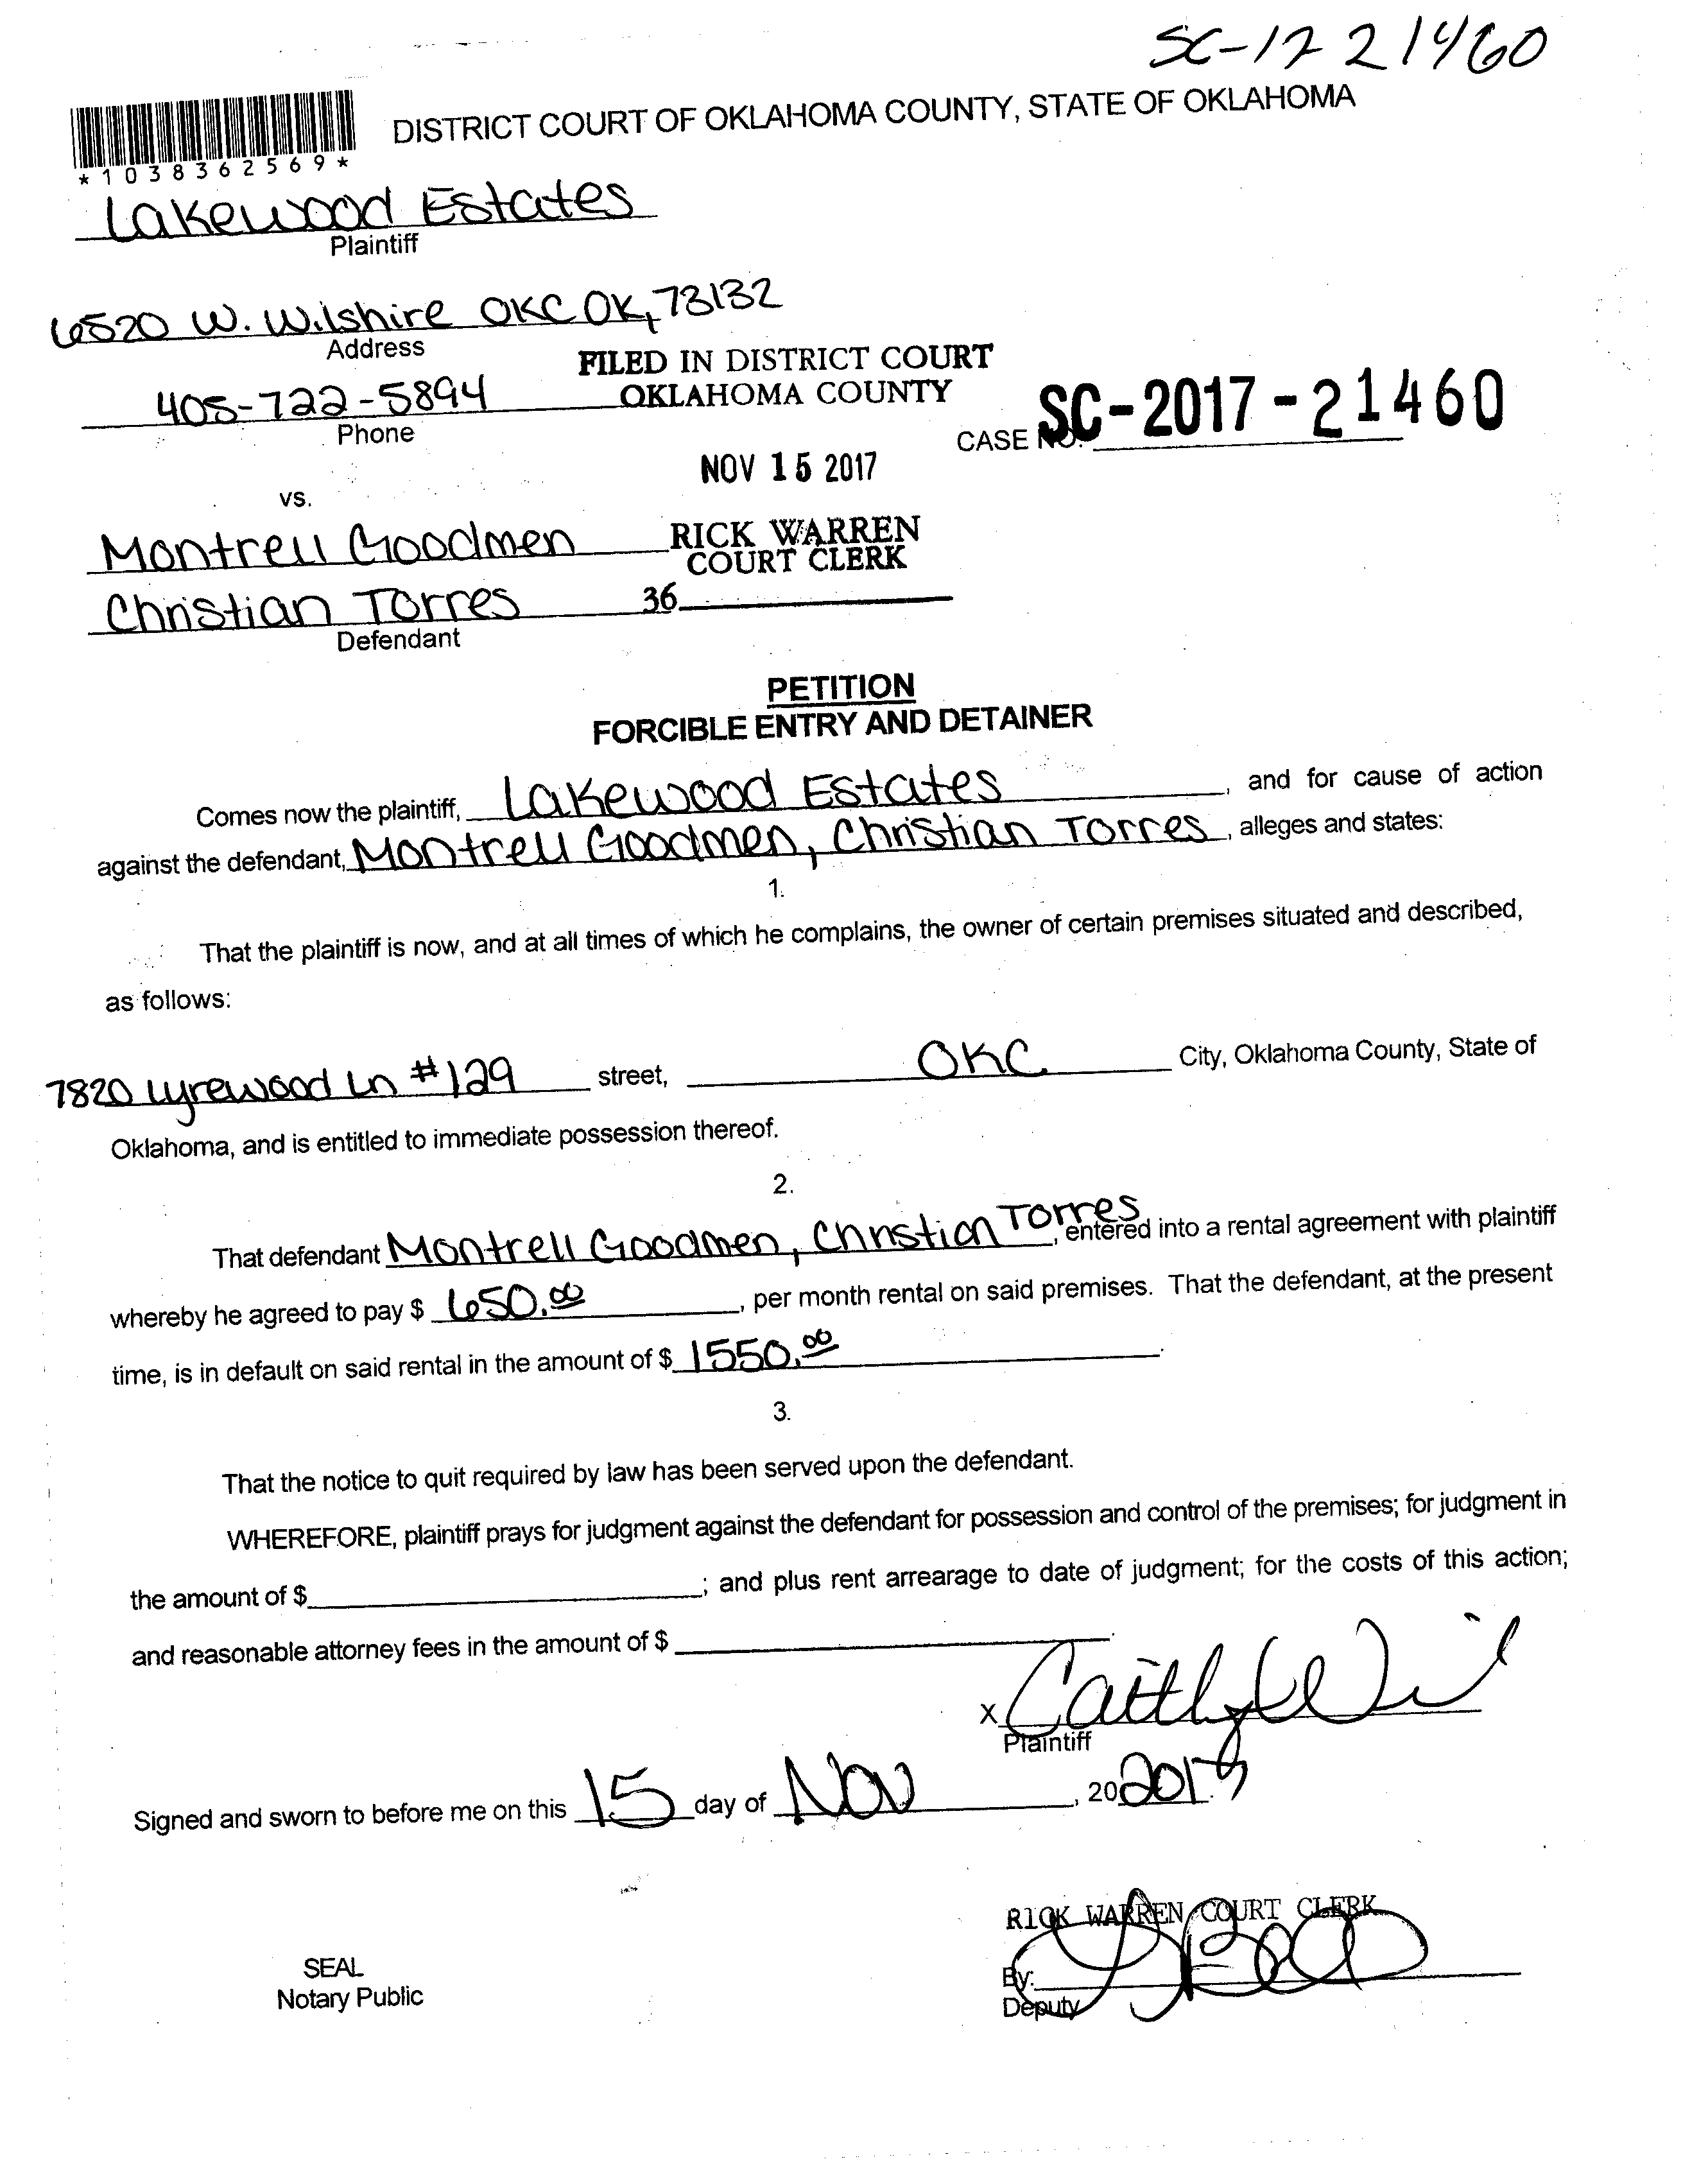 SC-17 21460
DISTRICT COURT OF OKLAHOMA COUNTY, STATE OF OKLAHOMA
*1038362569*
Lakewood Estates
Plaintiff
6520 W. Wilshire OKC OK, 73132
Address
FILED IN DISTRICT COURT
OKLAHOMA COUNTY
405-722-5894
Phone
CASE NO. SC-2017-21460
NOV 15 2017
vs.
Montrell Goodmen
RICK WARREN
COURT CLERK
Christian Torres
36
Defendant
PETITION
FORCIBLE ENTRY AND DETAINER
Comes now the plaintiff, Lakewood Estates, and for cause of action
against the defendant, Montrell Goodmen, Christian Torres, alleges and states:
1.
That the plaintiff is now, and at all times of which he complains, the owner of certain premises situated and described,
as follows:
7820 Lyrewood Ln #129 street, OKC City, Oklahoma County, State of
Oklahoma, and is entitled to immediate possession thereof.
2.
That defendant Montrell Goodmen, Christian Torres, entered into a rental agreement with plaintiff
whereby he agreed to pay $ 650.00, per month rental on said premises. That the defendant, at the present
time, is in default on said rental in the amount of $ 1550.00.
3.
That the notice to quit required by law has been served upon the defendant.
WHEREFORE, plaintiff prays for judgment against the defendant for possession and control of the premises; for judgment in
the amount of $ ; and plus rent arrearage to date of judgment; for the costs of this action;
and reasonable attorney fees in the amount of $ .
X
Plaintiff
Signed and sworn to before me on this 15 day of Nov, 20 2017.
RICK WARREN COURT CLERK
SEAL
Notary Public
By:
Deputy